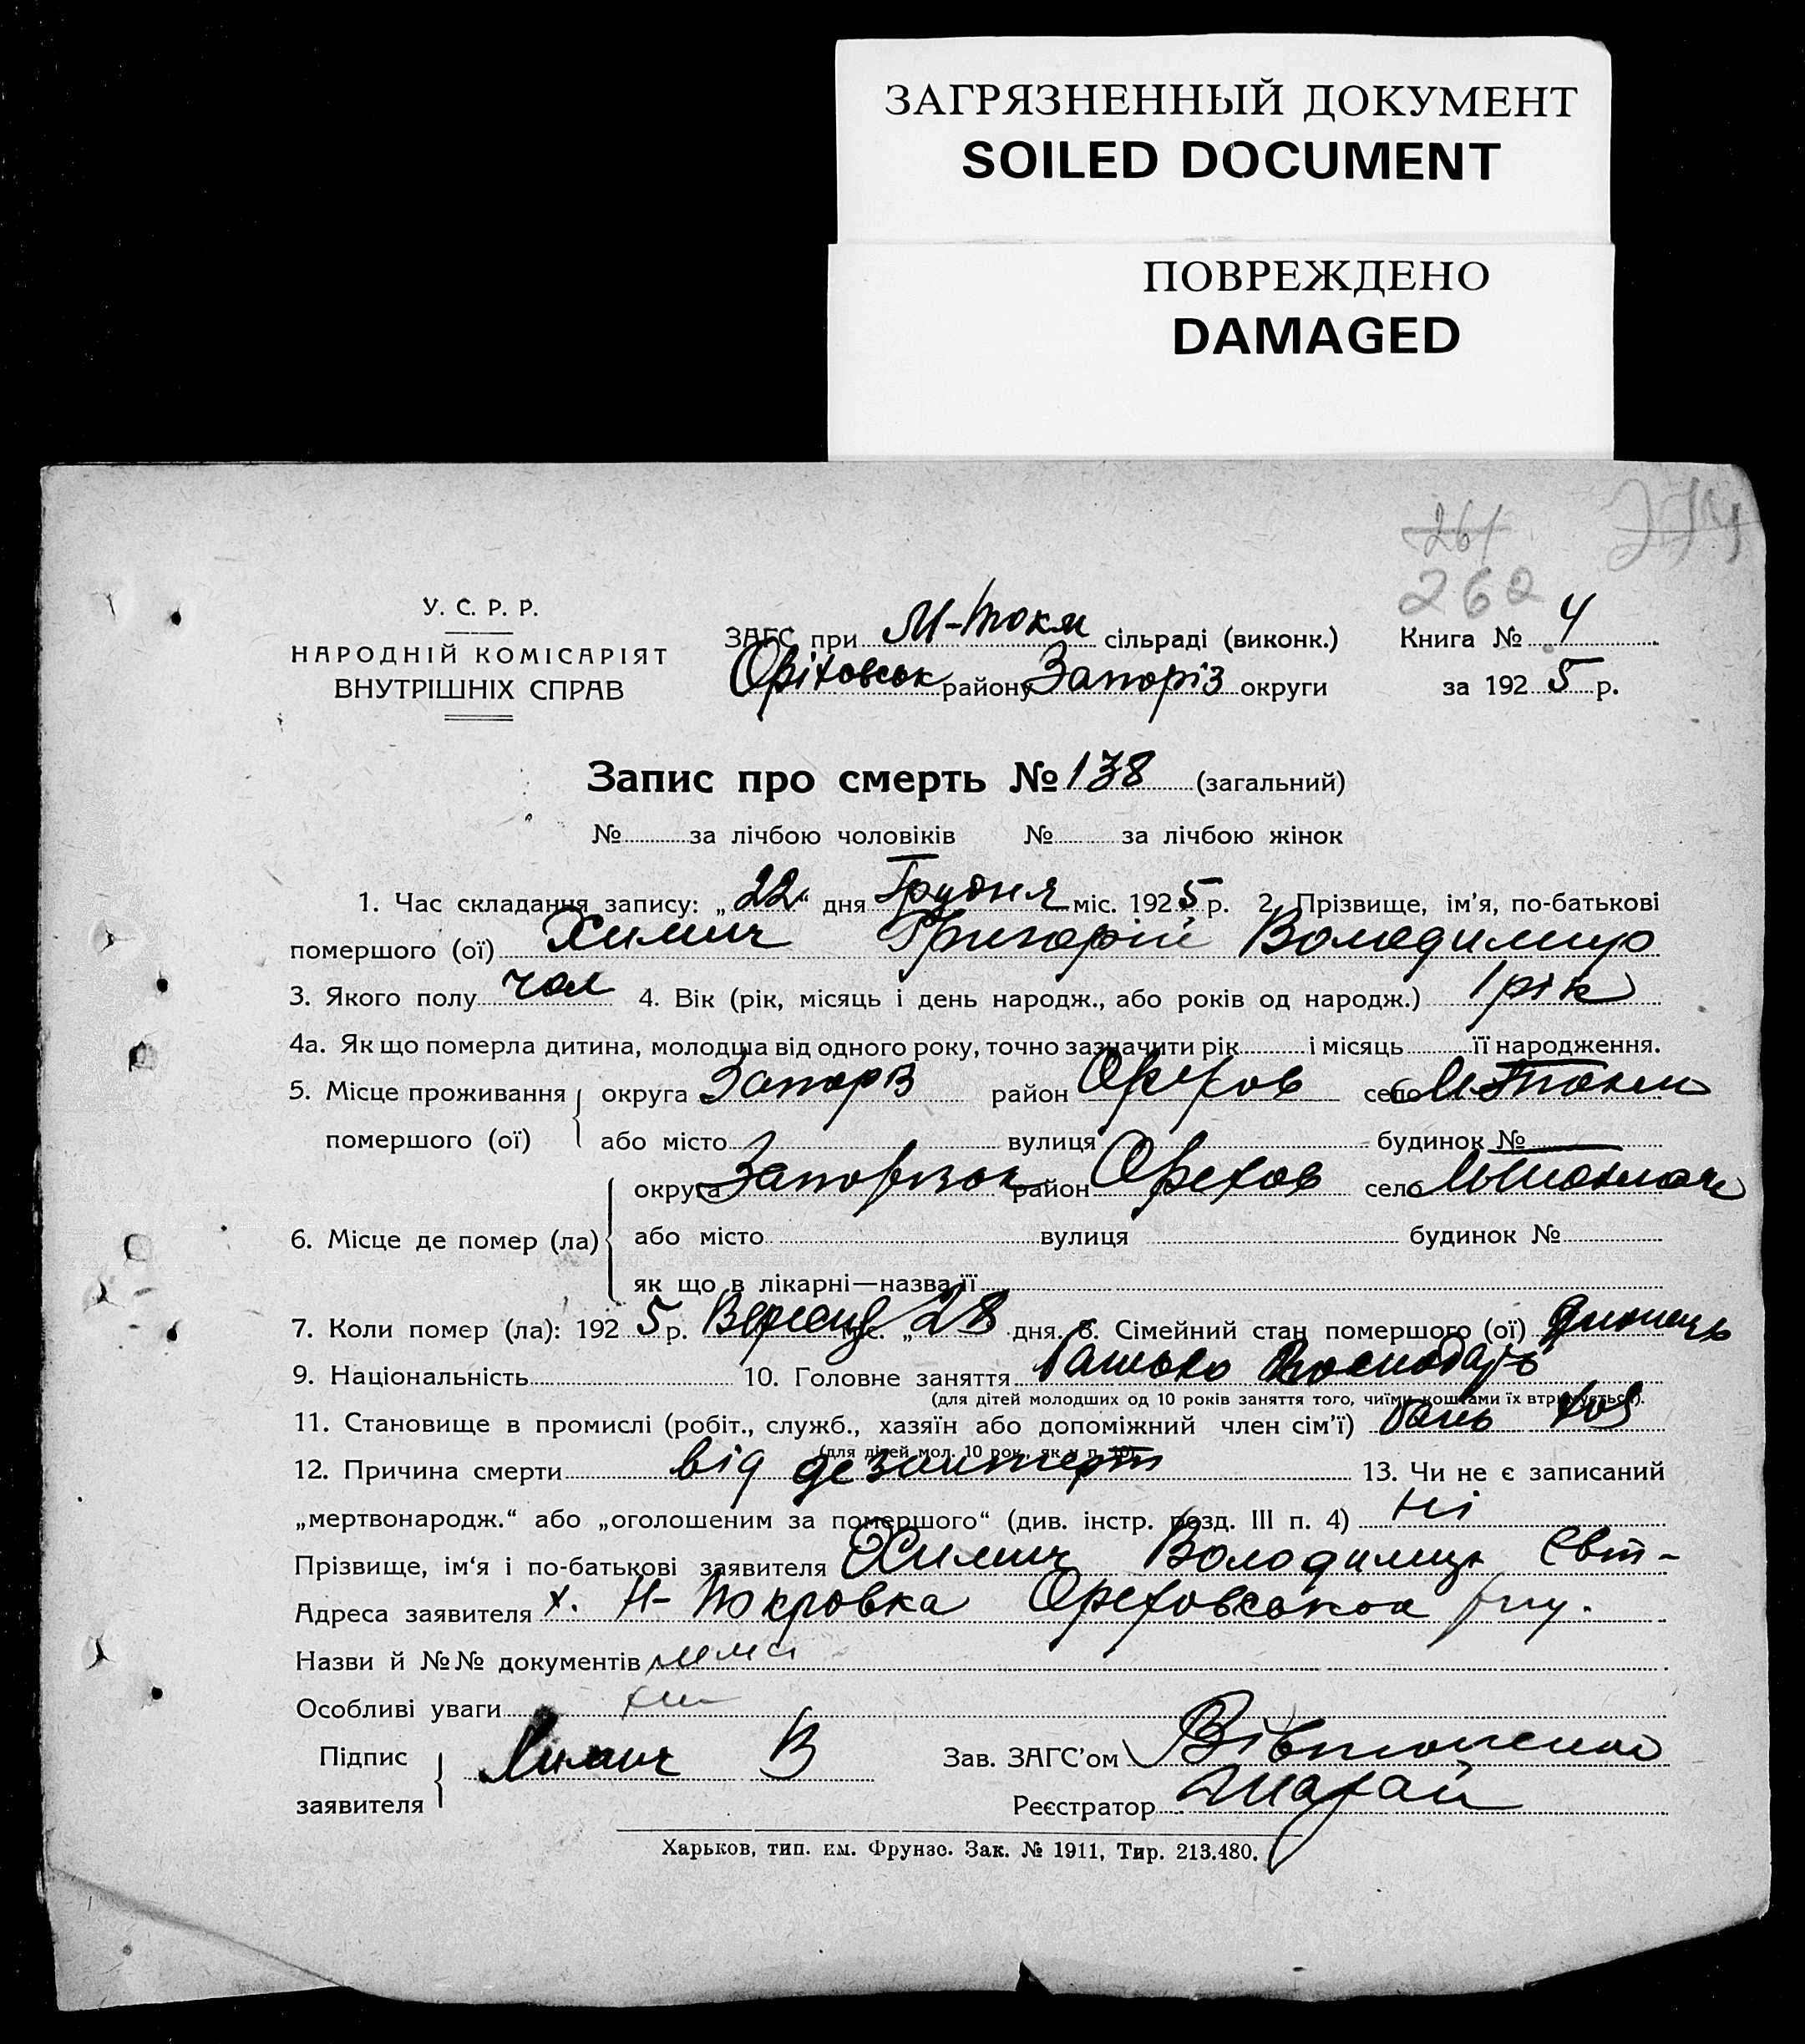 ЗАГРЯЗНЕННЫЙ ДОКУМЕНТ
SOILED DOCUMENT
ПОВРЕЖДЕНО
DAMAGED
261
262
У. С. Р. Р.
НАРОДНІЙ КОМІСАРІЯТ
ВНУТРІШНІХ СПРАВ
ЗАГС при М-Токм сільраді (виконк.) Книга № 4
Оріховськ району Запоріз округи за 1925 р.
Запис про смерть № 138 (загальний)
№ за лічбою чоловіків № за лічбою жінок
1. Час складання запису: „22“ дня Грудня міс. 1925 р. 2. Прізвище, ім’я, по-батькові
помершого (ої) Химич Григорій Володимир
3. Якого полу чол 4. Вік (рік, місяць і день народж., або років од народж.) 1 рік
4а. Як що померла дитина, молодша від одного року, точно зазначити рік і місяць її народження.
5. Місце проживання округа Запоріз район Орехов село М-Токм
помершого (ої) або місто вулиця будинок №
округа Запорізьк район Орехов село
6. Місце де помер (ла) або місто вулиця будинок №
як що в лікарні—назва її
7. Коли помер (ла): 1925 р. Вересц міс. „28 дня. 8. Сімейний стан помершого (ої)
9. Національність 10. Головне заняття Батько
(для дітей молодших од 10 років заняття того, чиїми коштами їх втримується).
11. Становище в промислі (робіт., служб., хазяїн або допоміжний член сім’ї)
(для дітей мол. 10 рок., як у п. 10).
12. Причина смерти від дезинтерт 13. Чи не є записаний
„мертвонародж.“ або „оголошеним за помершого“ (див. інстр. розд. III п. 4) Ні
Прізвище, ім‘я і по-батькові заявителя Химич Володимир Євт-
Адреса заявителя х. Н-Покровка Ореховської
Назви й №№ документів
Особливі уваги
Підпис Химич В Зав. ЗАГС’ом
заявителя Реєстратор
Харьков, тип. им. Фрунзе. Зак. № 1911, Тир. 213.480.